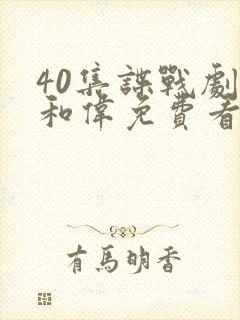 40集諜戰劇
和偉免費看
有馬明香